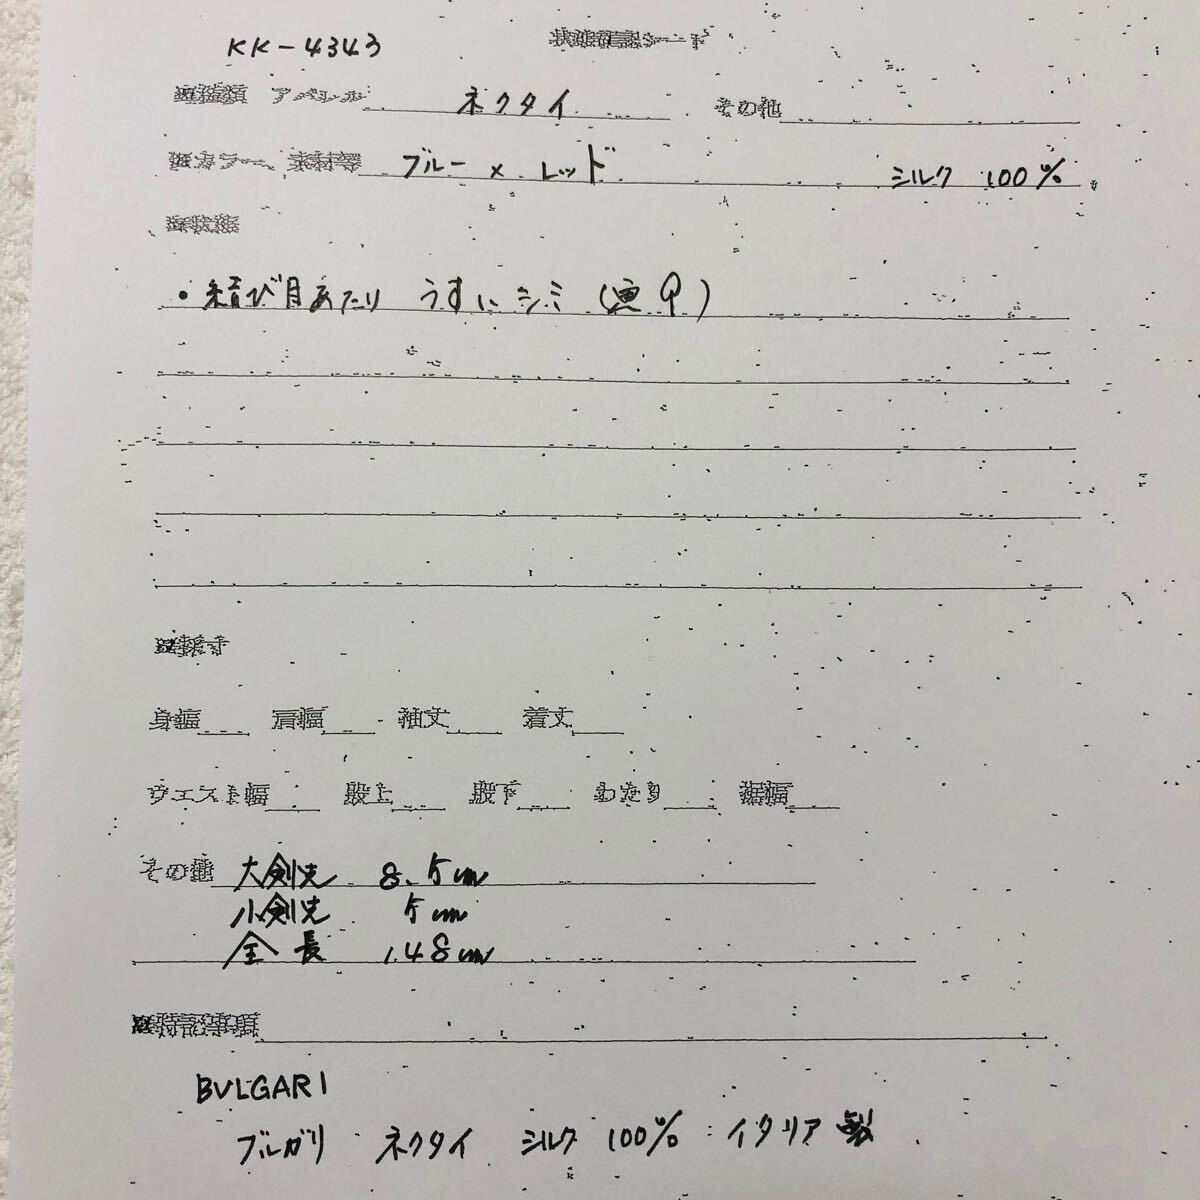 KK-4343 状態確認シート
アパレル ネクタイ その他
カラー 素材等 ブルー × レッド シルク 100%
・結び目あたり うすいシミ (画9)
身幅 肩幅 袖丈 着丈
ウエスト幅 股上 股下 わたり 裾幅
その他 大剣先 8.5cm
小剣先 5cm
全長 148cm
特記事項
BVLGARI
ブルガリ ネクタイ シルク 100% イタリア製